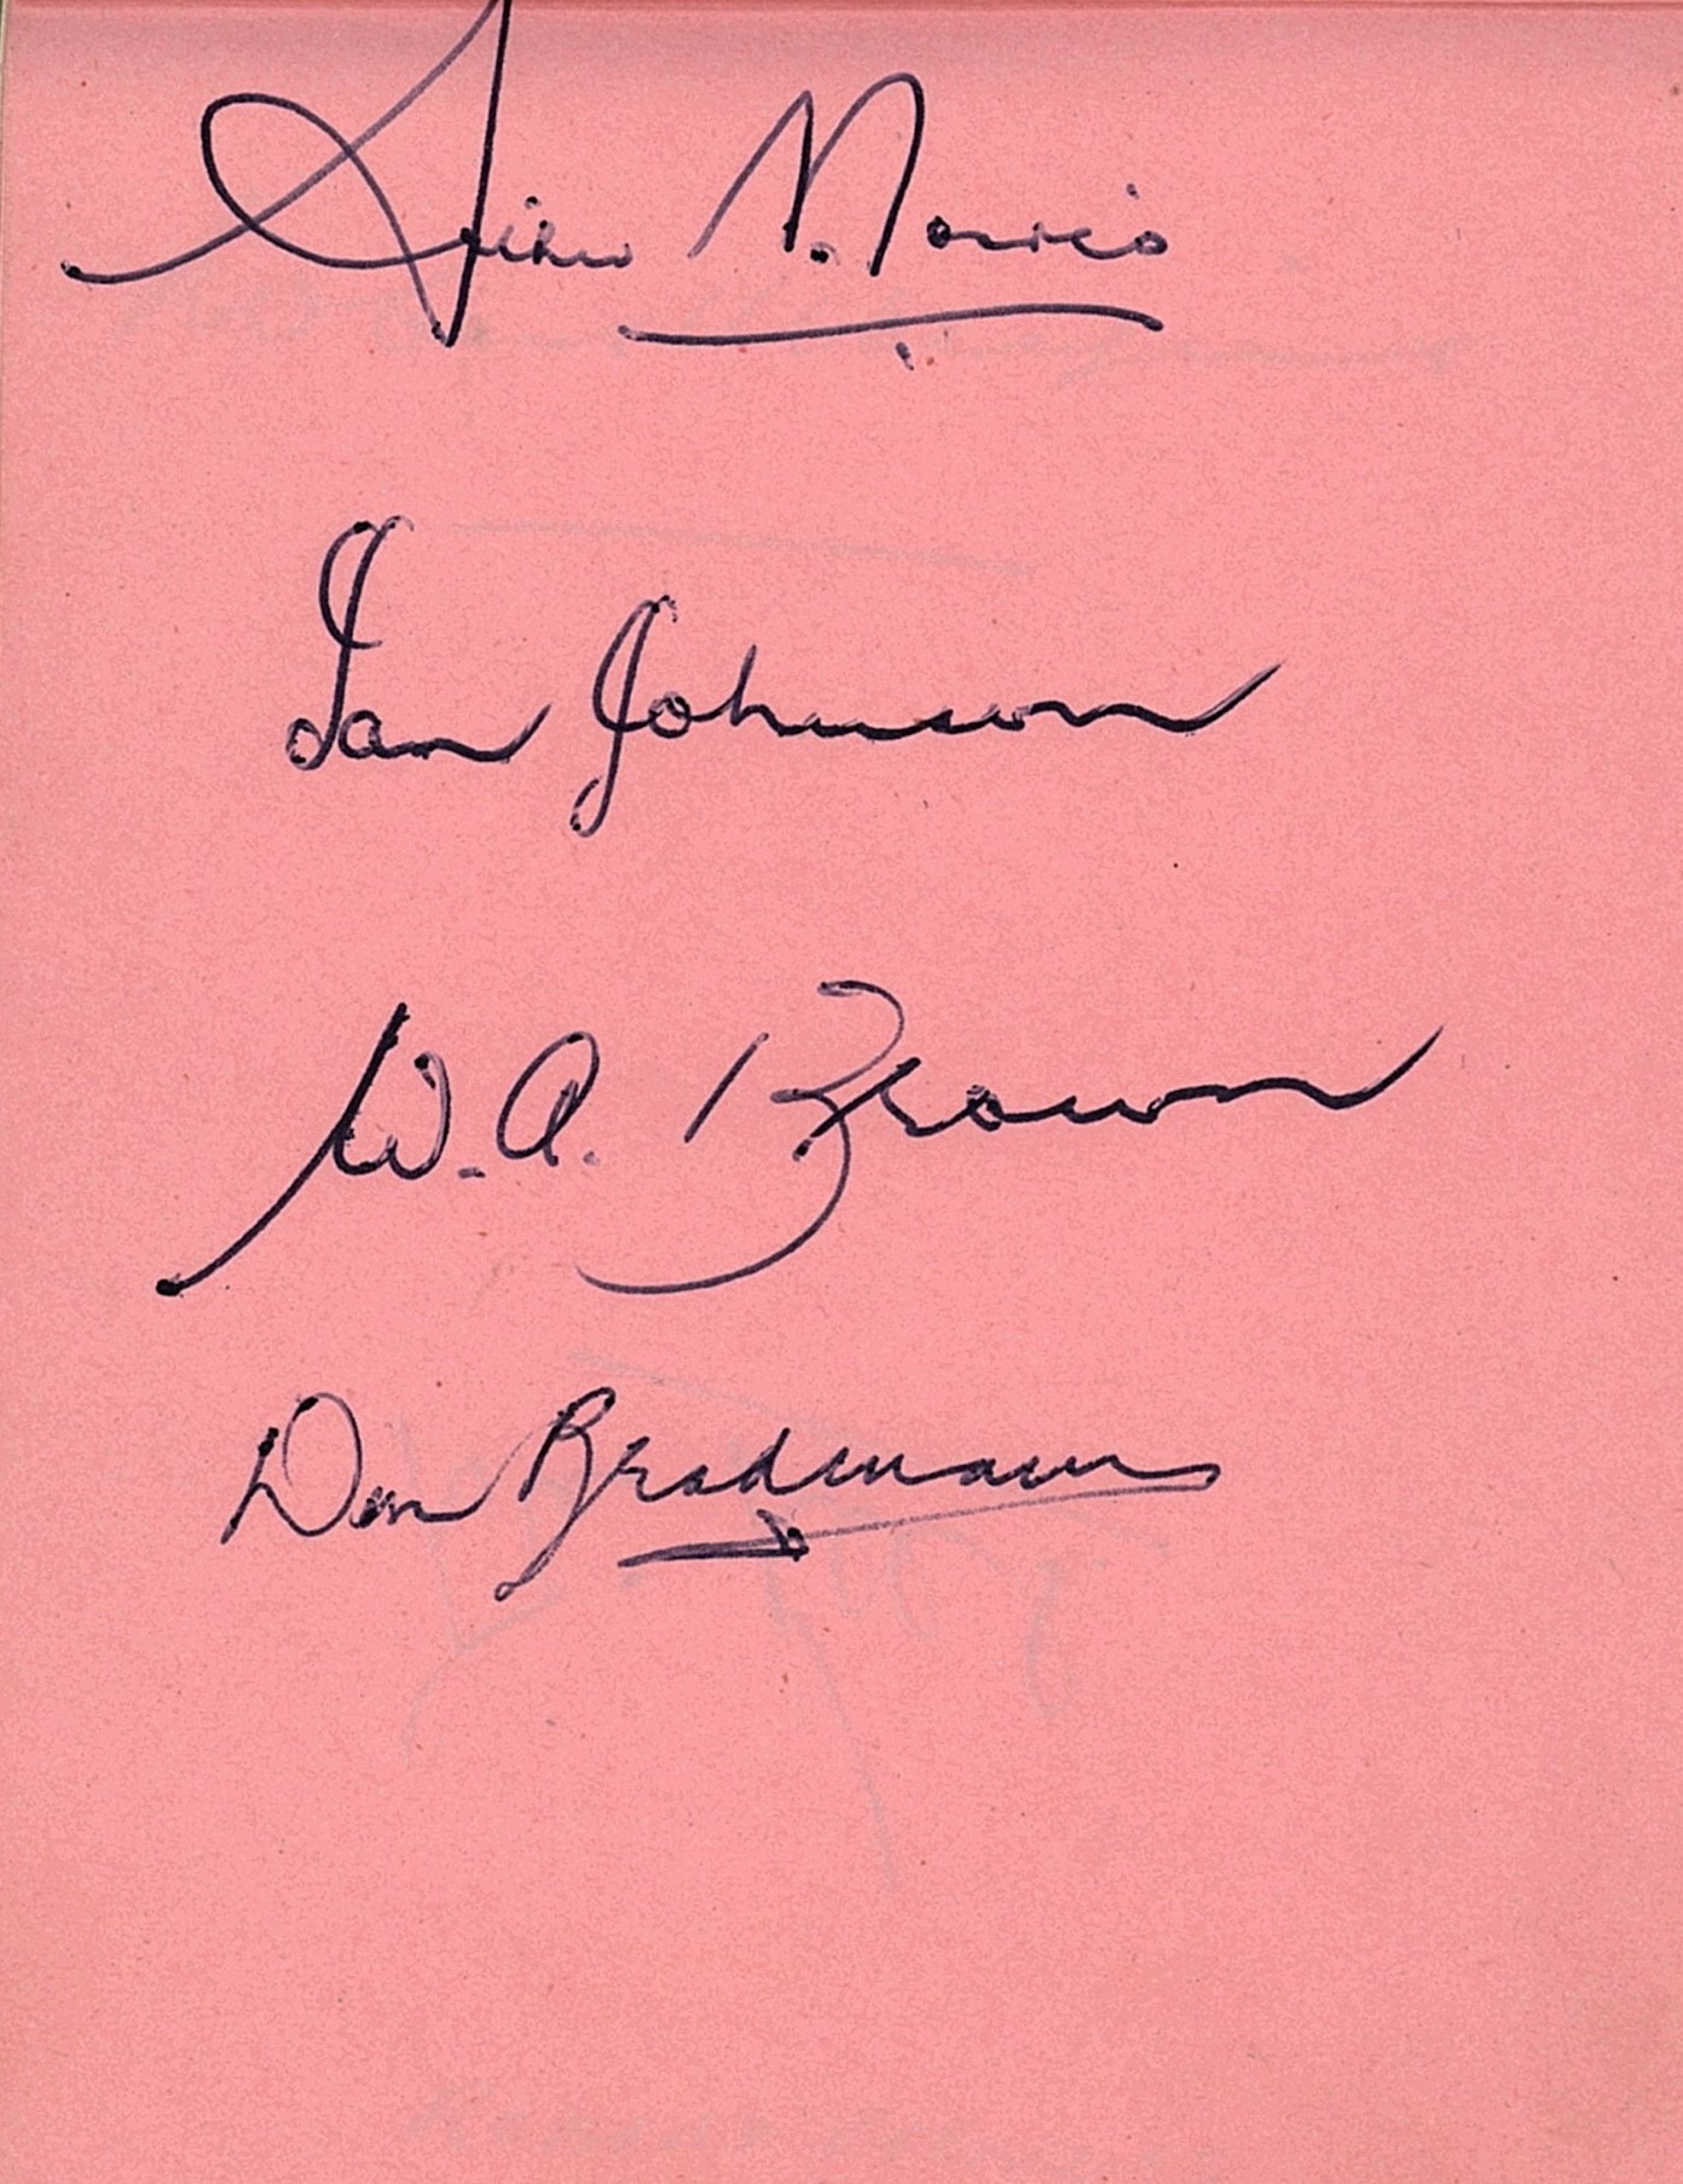 Arthur Morris
Ian Johnson
W. A. Brown
Don Bradman